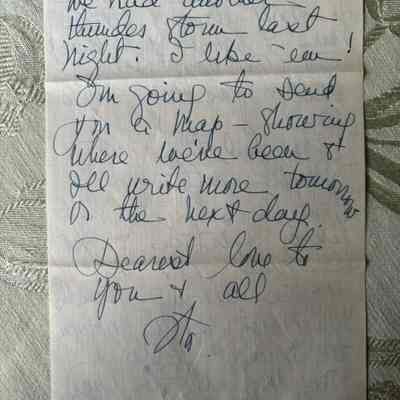 we had another
thunder storm last
night. I like 'em!
I'm going to send
you a map - showing
where we've been &
I'll write more tomorrow
or the next day.
Dearest love to
you & all